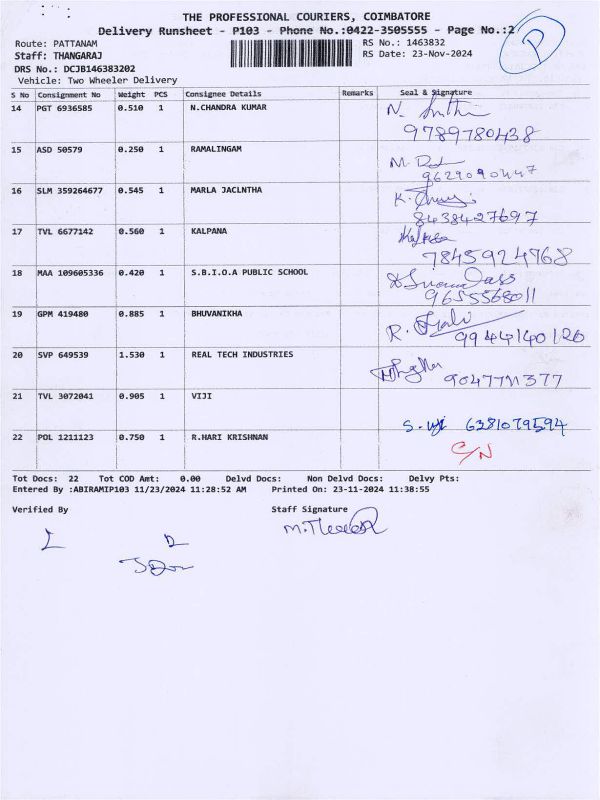 THE PROFESSIONAL COURIERS, COIMBATORE
Delivery Runsheet - P103 - Phone No.:0422-3505555 - Page No.:2
P
Route: PATTANAM RS No.: 1463832
Staff: THANGARAJ RS Date: 23-Nov-2024
DRS No.: DCJB146383202
Vehicle: Two Wheeler Delivery
S No Consignment No Weight PCS Consignee Details Remarks Seal & Signature
14 PGT 6936585 0.510 1 N.CHANDRA KUMAR N.
9789780438
15 ASD 50579 0.250 1 RAMALINGAM M.
16 SLM 359264677 0.545 1 MARLA JACLNTHA K.
8438427697
17 TVL 6677142 0.560 1 KALPANA
7845924768
18 MAA 109605336 0.420 1 S.B.I.O.A PUBLIC SCHOOL
9655568011
19 GPM 419480 0.885 1 BHUVANIKHA R.
9944140120
20 SVP 649539 1.530 1 REAL TECH INDUSTRIES
21 TVL 3072041 0.905 1 VIJI
S. 6381079594
22 POL 1211123 0.750 1 R.HARI KRISHNAN C/N
Tot Docs: 22 Tot COD Amt: 0.00 Delvd Docs: Non Delvd Docs: Delvy Pts:
Entered By :ABIRAMIP103 11/23/2024 11:28:52 AM Printed On: 23-11-2024 11:38:55
Verified By Staff Signature